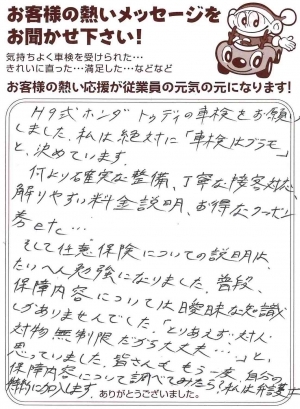 お客様の熱いメッセージを
お聞かせ下さい!
気持ちよく車検を受けられた…
きれいに直った…満足した…などなど
お客様の熱い応援が従業員の元気の元になります!
H9式ホンダ トゥデイの車検をお願い
しました。私は絶対に「車検はプラモ」
と決めています。
何より確実な整備、丁寧な接客対応、
解りやすい料金説明、お得なクーポン
券etc…
そして任意保険についての説明は、
たいへん勉強になりました。普段、
保障内容については曖昧な知識
しかありませんでした。「とりあえず対人
対物無制限だから大丈夫…」と、
思っていました。皆さんも もう一度、自分の
保障内容について調べてみたら?私は弁護士
特約に加入します
ありがとうございました。